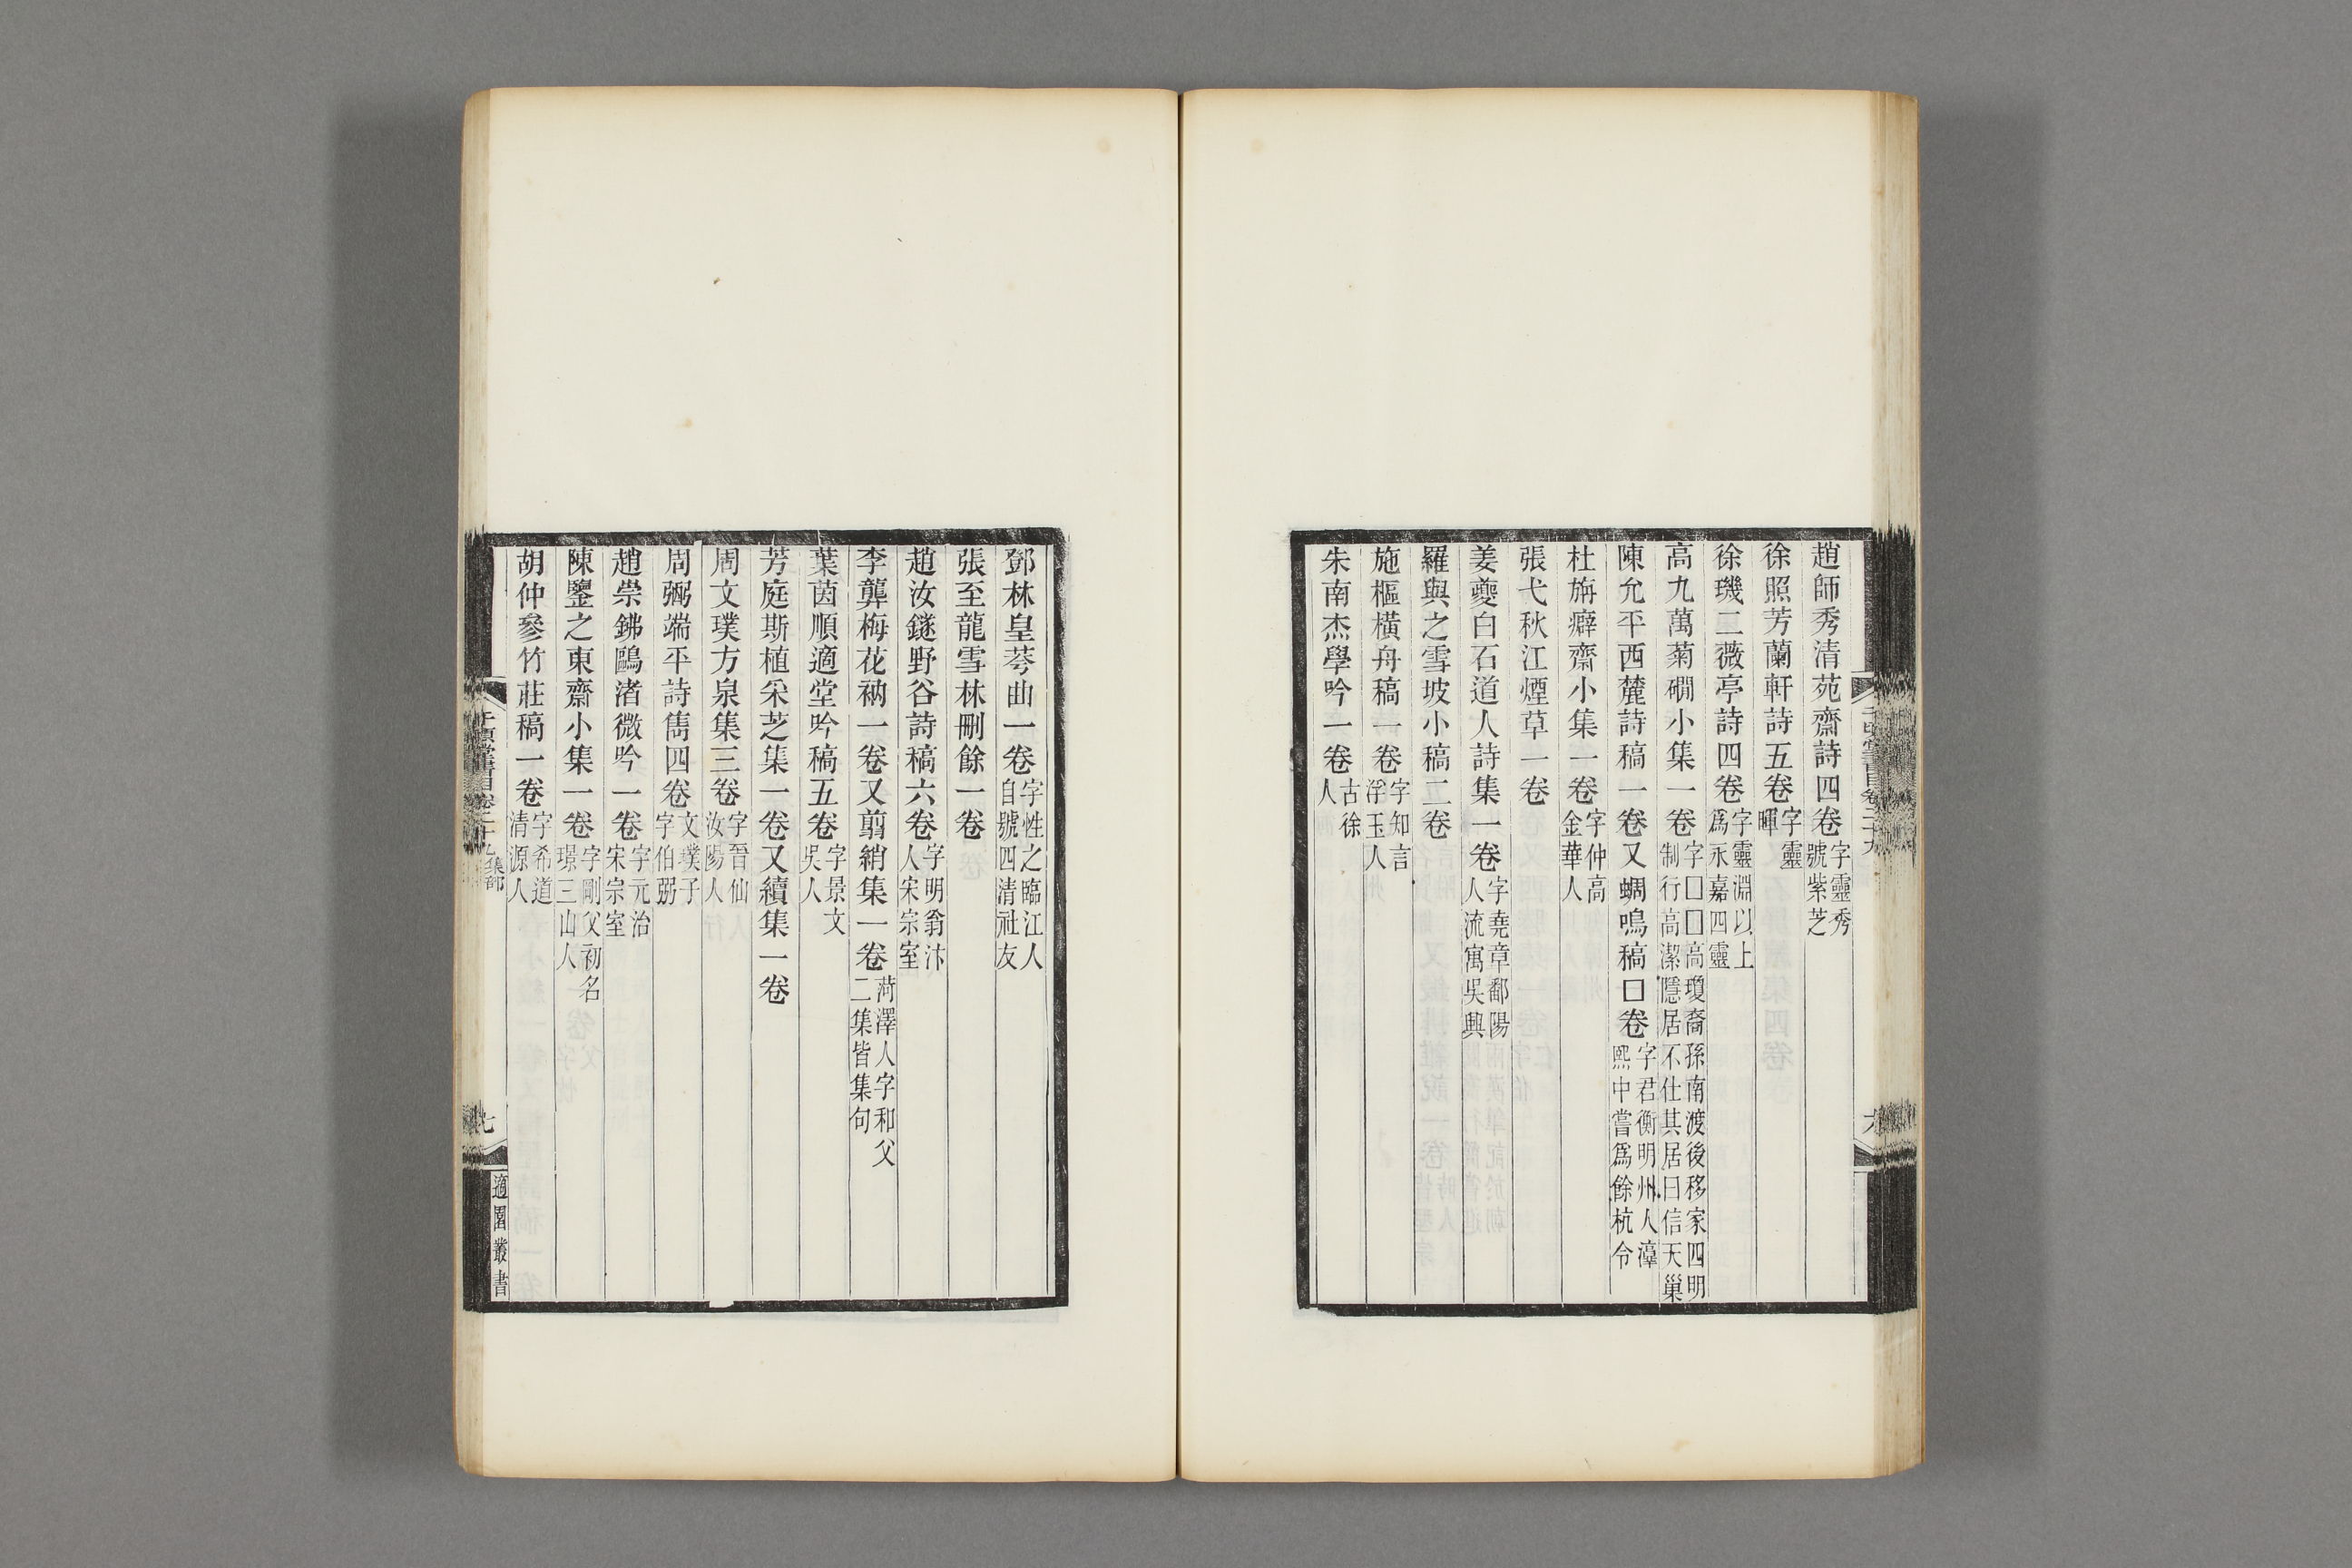 趙師秀清苑齋詩四卷字靈秀號紫芝
徐照芳蘭軒詩五卷字靈暉
徐璣二薇亭詩四卷字靈淵以上爲永嘉四靈
高九萬菊磵小集一卷字□□高瓊裔孫南渡後移家四明制行高潔隱居不仕其居曰信天巢
陳允平西麓詩稿一卷又蜩鳴稿□卷字君衡明州人淳熙中嘗爲餘杭令
杜旃癖齋小集一卷字仲高金華人
張弋秋江煙草一卷
姜夔白石道人詩集一卷字堯章鄱陽人流寓吳興
羅與之雪坡小稿二卷
施樞橫舟稿一卷字知言浮玉人
朱南杰學吟一卷古徐人
鄧林皇荂曲一卷字性之臨江人自號四清社友
張至龍雪林刪餘一卷
趙汝鐩野谷詩稿六卷字明翁汴人宋宗室
李龏梅花衲一卷又翦綃集一卷菏澤人字和父二集皆集句
葉茵順適堂吟稿五卷字景文吳人
芳庭斯植采芝集一卷又續集一卷
周文璞方泉集三卷字晉仙汝陽人
周弼端平詩雋四卷文璞子字伯弼
趙崇鉘鷗渚微吟一卷字元治宋宗室
陳鑒之東齋小集一卷字剛父初名璟三山人
胡仲參竹莊稿一卷字希道清源人
千頃堂書目卷二十九集部
七
適園叢書